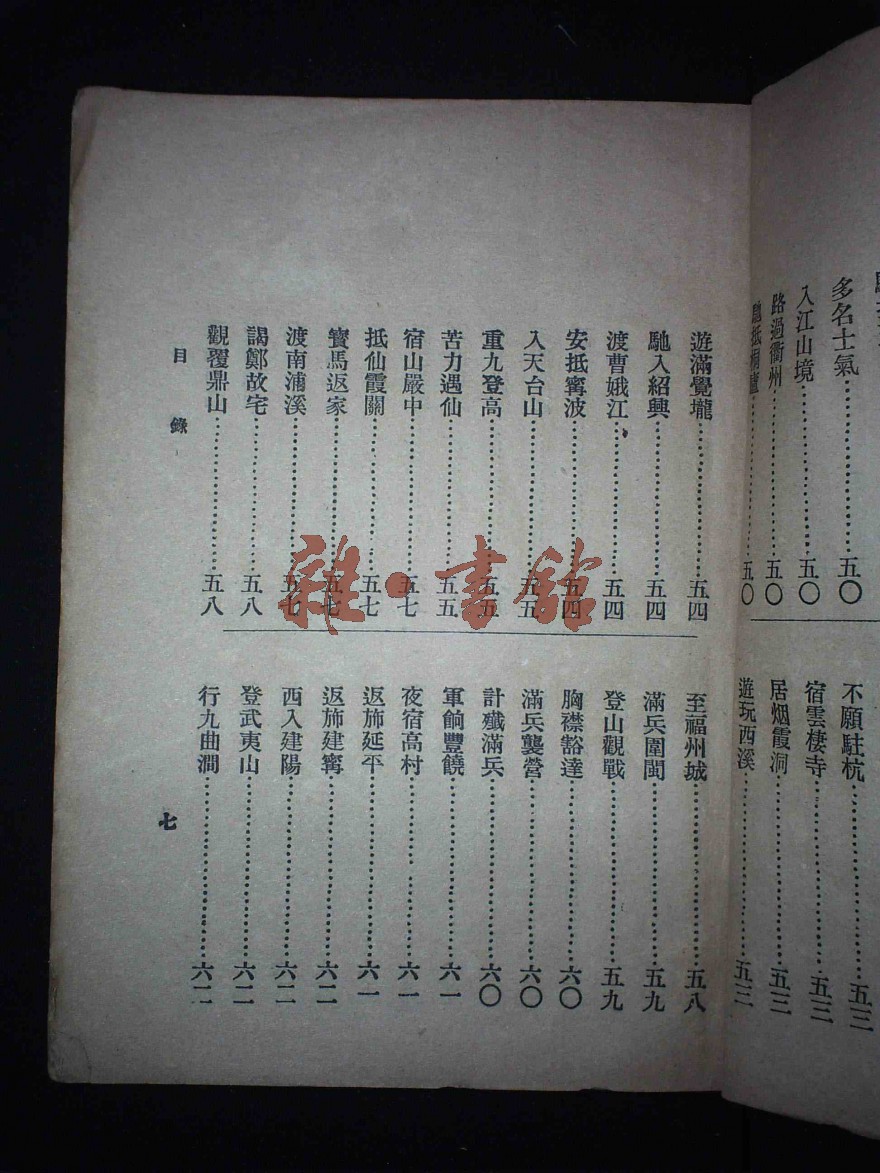 多名士氣…………五〇
入江山境…………五〇
路過衢州…………五〇
抵桐廬…………五〇
不願駐杭…………五三
宿雲棲寺…………五三
居烟霞洞…………五三
遊玩西溪…………五三
遊滿覺壠…………五四
馳入紹興…………五四
渡曹娥江…………五四
安抵甯波…………五四
入天台山…………五五
重九登高…………五五
苦力遇仙…………五五
宿山嚴中…………五七
抵仙霞關…………五七
寳馬返家…………五七
渡南浦溪…………五七
謁鄭故宅…………五八
觀覆鼎山…………五八
至福州城…………五八
滿兵圍閩…………五九
登山觀戰…………五九
胸襟豁達…………六〇
滿兵襲營…………六〇
計殲滿兵…………六〇
軍餉豐饒…………六一
夜宿高村…………六一
返斾延平…………六一
返斾建甯…………六二
西入建陽…………六二
登武夷山…………六二
行九曲澗…………六二
目錄
七
雜·書館